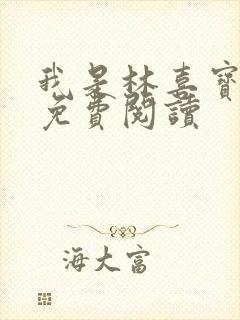 我是林喜寶
免費閱讀
海大富